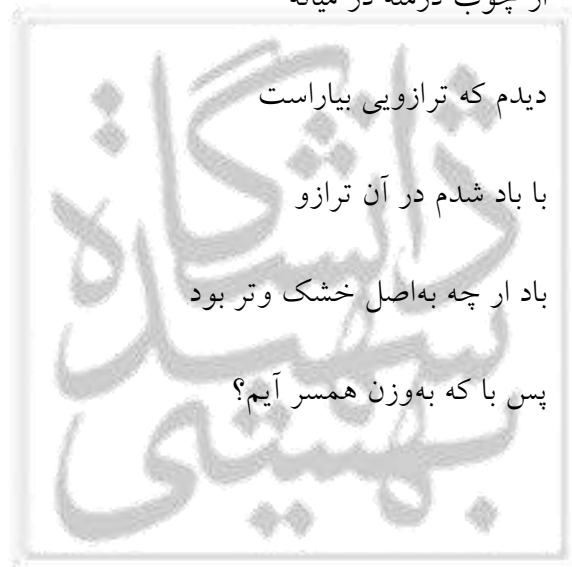 از چوب درمنه در میانه
دیدم که ترازویی بیاراست
با باد شدم در آن ترازو
باد ار چه به‌اصل خشک وتر بود
پس با که به‌وزن همسر آیم؟
دانشگاه
شهید
بهشتی